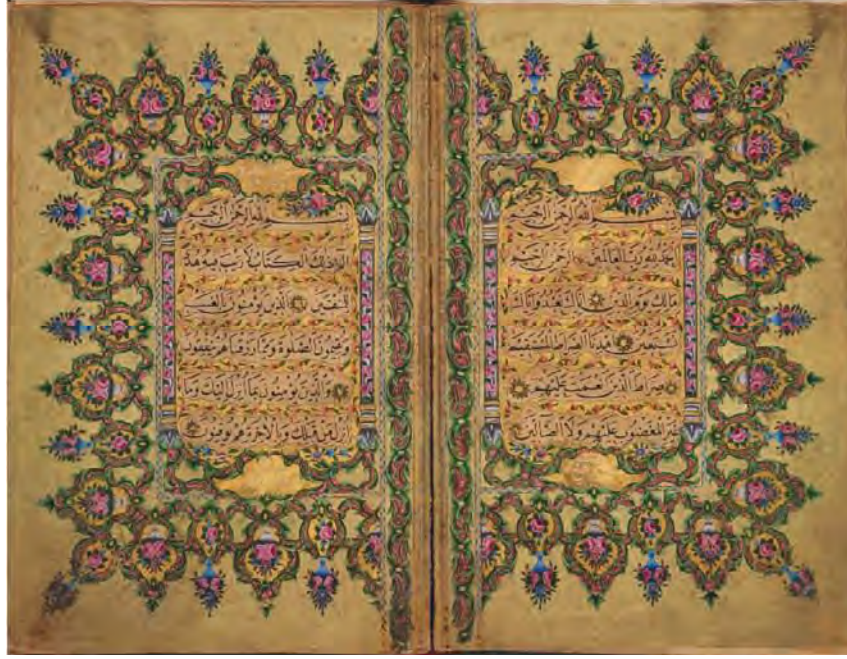 بسم الله الرحمن الرحيم
الحمد لله رب العالمين الرحمن الرحيم
مالك يوم الدين اياك نعبد واياك
نستعين اهدنا الصراط المستقيم
صراط الذين انعمت عليهم
غير المغضوب عليهم ولا الضالين
بسم الله الرحمن الرحيم
الم ذلك الكتاب لا ريب فيه هدى
للمتقين الذين يؤمنون بالغيب
ويقيمون الصلوة ومما رزقناهم ينفقون
والذين يؤمنون بما انزل اليك وما
انزل من قبلك وبالاخرة هم يوقنون